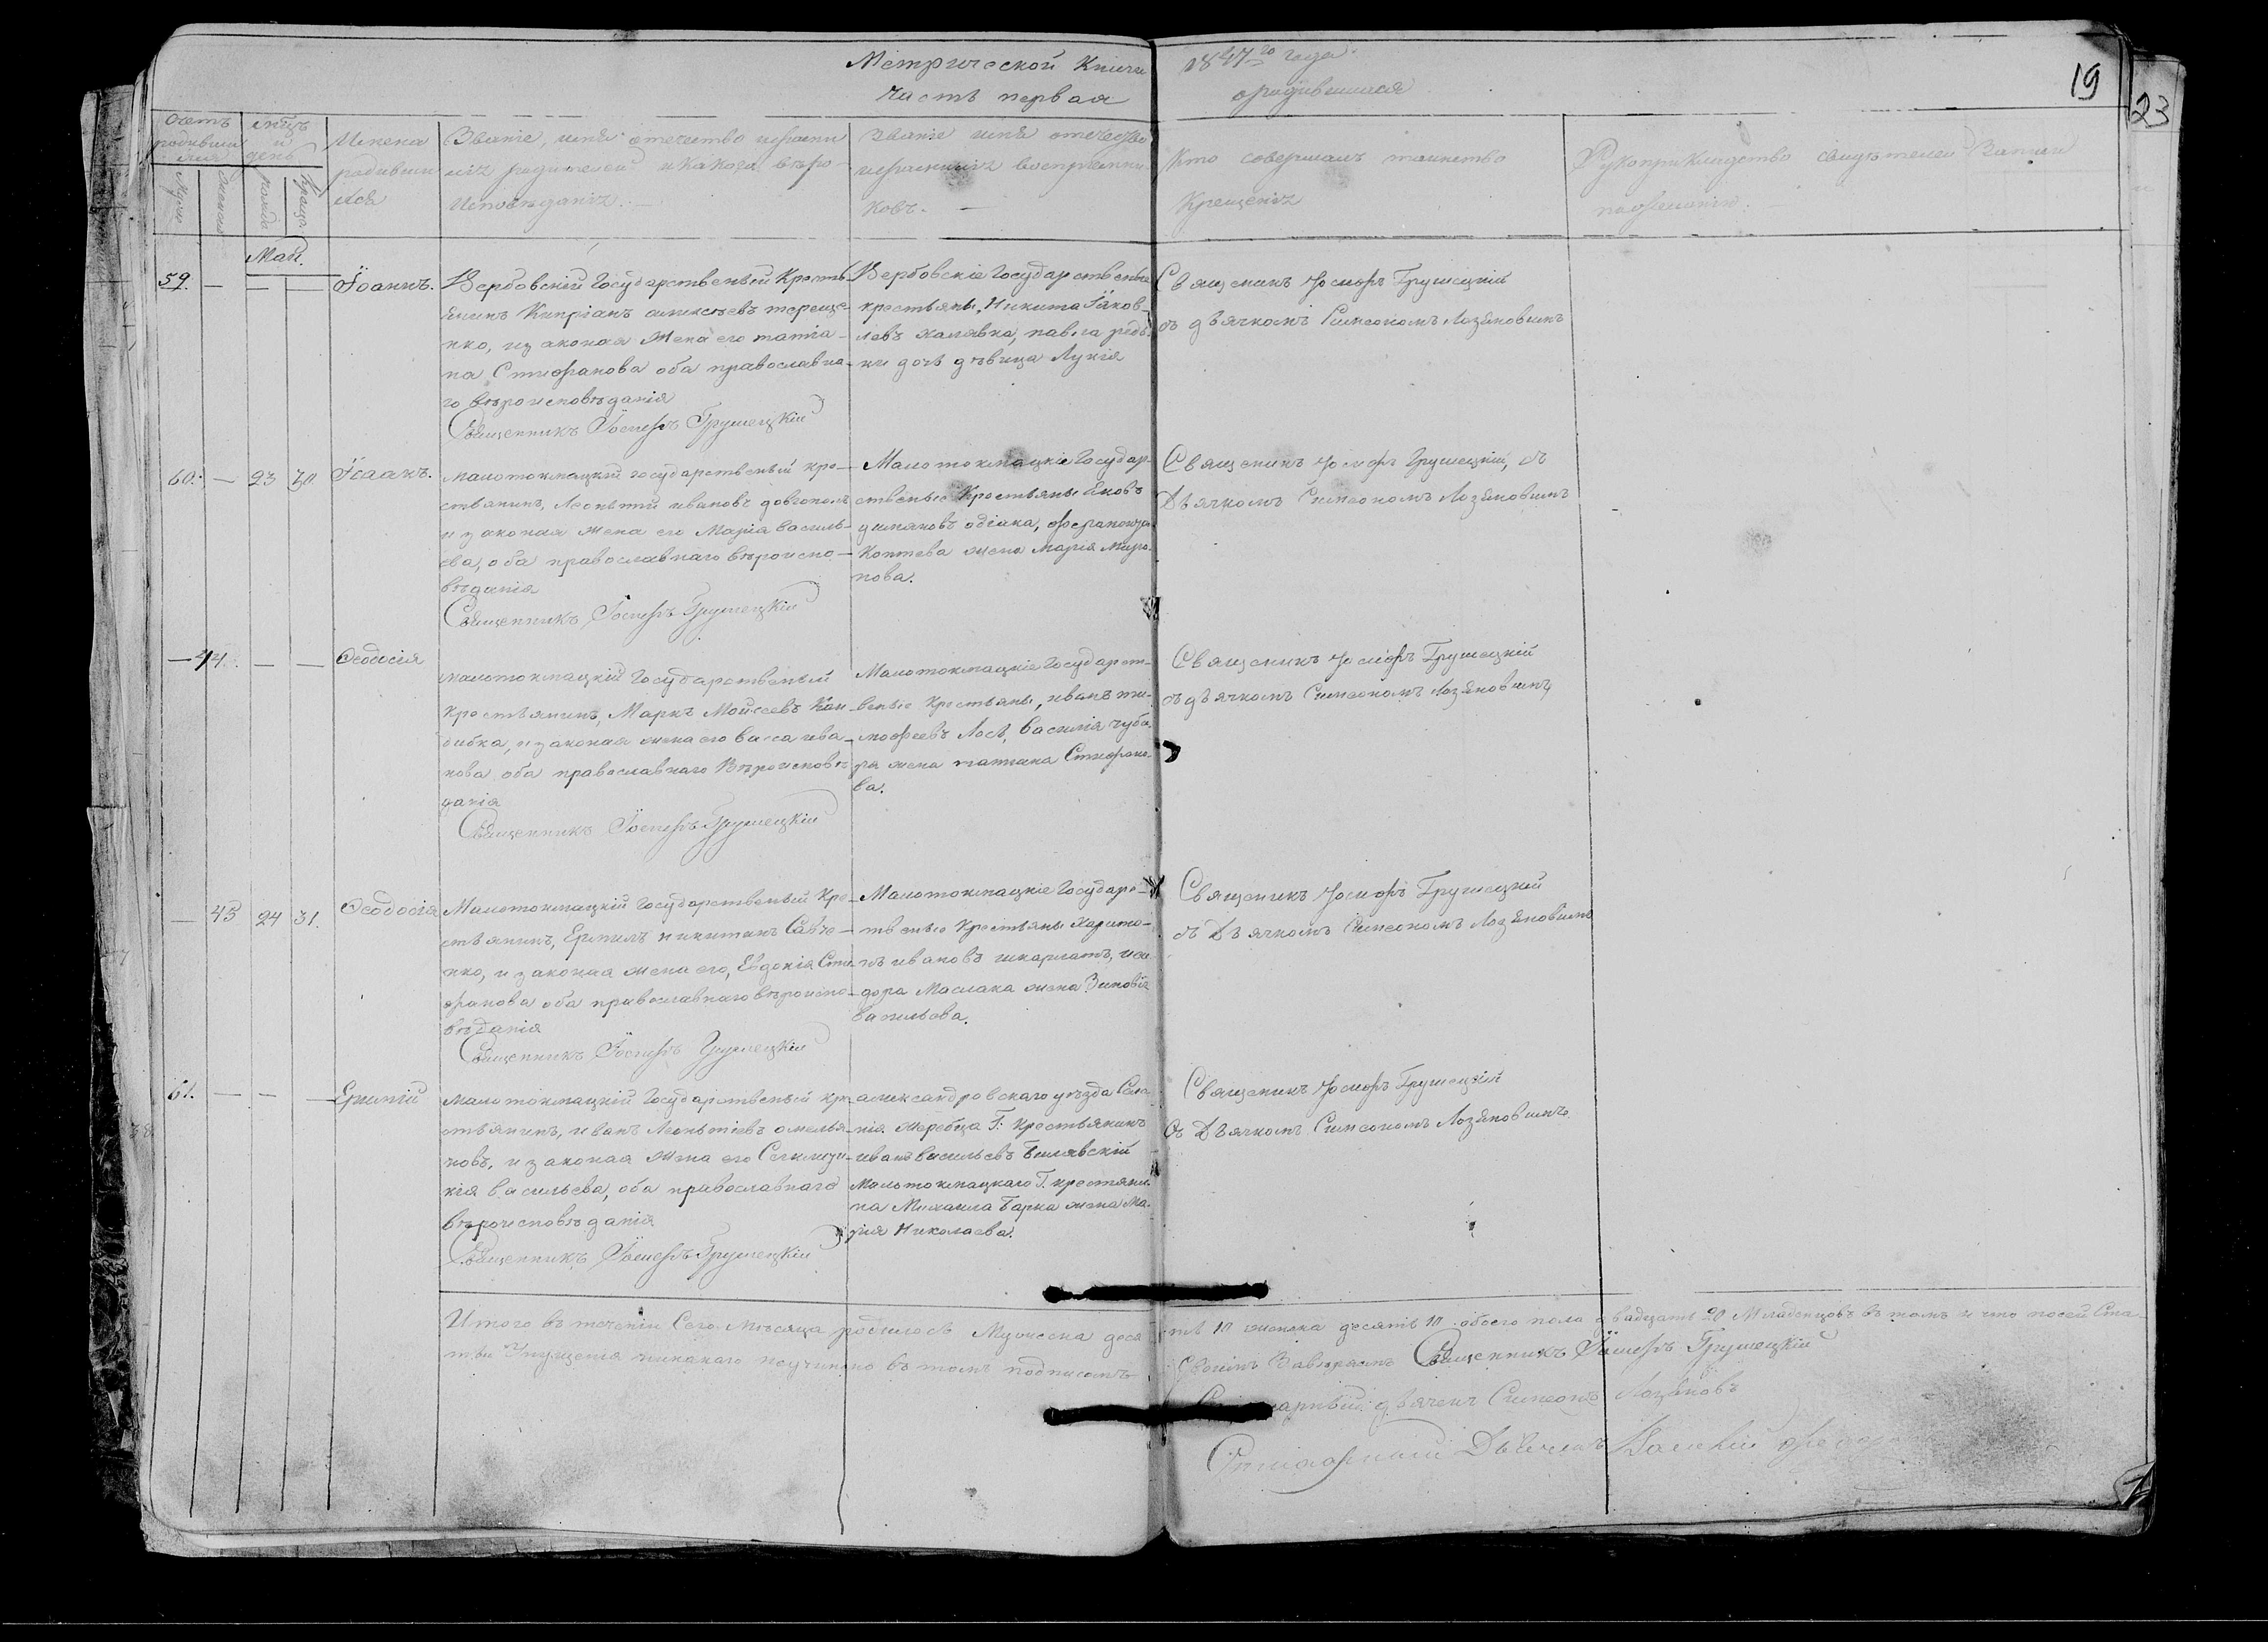 Метрической Книги 1847го года
часть первая о родившихся
19
23
Счетъ родившихся
Мѣсяцъ и день
Имена родившихся
Званіе, имя отечество и фамилія родителей и какого вѣроисповѣданія.
Званіе имя отечество и фамилія воспріемниковъ.
Кто совершалъ таинство Крещенія
Рукоприкладство свидѣтелей Записи по желанію.
Муж
Женска
рожде
креще
Май.
59. — — —
Іоаннъ.
Вербовскій Государственый Кресть
янинъ Кипріанъ алексѣевъ тереще-
нко, и законая жена его татіа-
на Стефанова оба православна-
го вѣроисповѣданія
Священникъ Іосифъ Грушецкій
Вербовскіе Государственые
крестьяны, Никита Іаков-
левъ халявка, павла редь-
ки дочь дѣвица Лукія
Священикъ Іосифъ Грушецкій
съ дѣячкомъ Симеономъ Лозяновымъ
60. — 23 30
Ісаакъ.
малотокмацкій государственый кре-
стьянинъ, Леонтій ивановъ довгополъ
и законая жена его Марія василь-
ева, оба православнаго вѣроиспо-
вѣданія
Священникъ Іосифъ Грушецкій
Малотокмацкіе Государ-
ственые Крестьяны Яковъ
жена Марія Миро-
нова.
Священикъ Іосифъ Грушецкій, съ
Дѣячкомъ Симеономъ Лозяновымъ
— 44. — —
Ѳеодосія
малотокмацкій Государственый
Крестьянинъ, Маркъ Моисеевъ Кан
дибка, и законая жена его васса ива-
нова оба православнаго Вѣроисповѣ
данія
Священникъ Іосифъ Грушецкій
Малотокмацкіе Государст-
веные Крестьяны, иванъ ти-
мофѣевъ Лось, василія чуба
ря жена татіана Стефано-
ва.
Священикъ Іосифъ Грушецкій
съ дѣячкомъ Симеономъ Лозяновымъ
— 45 24 31.
Ѳеодосія
Малотокмацкій Государственый Кре-
стьянинъ, Ермилъ никитинъ Савче-
нко, и законая жена его, Евдокія Сте-
фанова оба православнаго вѣроиспо-
вѣданія
Священникъ Іосифъ Грушецкій
Малотокмацкіе Государс-
твеные Крестьяны Харито-
нъ ивановъ шкарлатъ, иси-
дора Маслака жена Зиновія
васильева.
Священикъ Іосифъ Грушецкій
съ Дѣячкомъ Симеономъ Лозяновымъ
61. — — —
Ермій
малотокмацкій Государственый кре-
стьянинъ, иванъ Леонтіевъ омелья-
новъ, и законая жена его
васильева, оба православнаго
вѣроисповѣданія
Священникъ Іосифъ Грушецкій
александровскаго уѣзда Селе-
нія жеребца Г. Крестьянинъ
иванъ васильевъ Билявскій
Малотокмацкаго Г. крестяни-
на Михаила Гарка жена Ма-
рія Николаева.
Священикъ Іосифъ Грушецкій
съ Дѣячкомъ Симеономъ Лозяновымъ
Итого въ теченіи Сего Мѣсяца родилось Мужеска деся ть 10 женска десять 10 обоего пола двадцать 20 Младенцовъ въ томъ и что посей Ста-
тьи Упущенія никакого неучинено въ томъ подписомъ Своимъ Завѣряемъ Священникъ Іосифъ Грушецкій
дѣячекъ Симеонъ Лозяновъ
Дѣячекъ